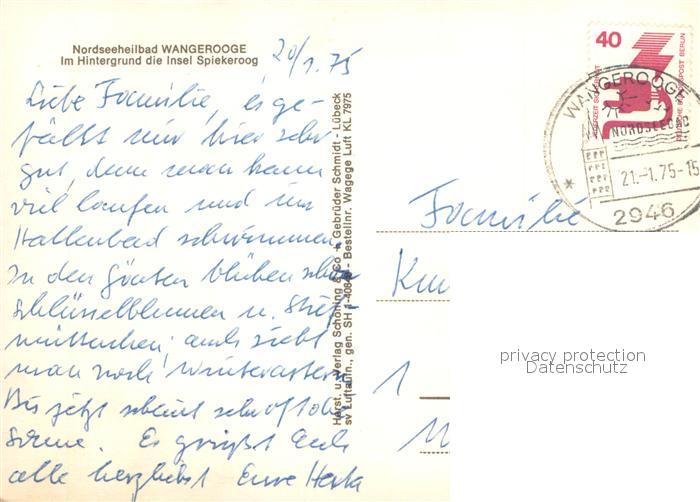 Nordseeheilbad WANGEROOGE
Im Hintergrund die Insel Spiekeroog
20/1.75
Liebe Familie, es ge-
fällt mir hier sehr
gut, denn man kann
viel laufen und im
Hallenbad schwimmen.
In den Gärten blühen schon
Schlüsselblumen u. Stief-
mütterchen; auch sieht
man noch Winterastern
Bis jetzt scheint sehr oft die
Sonne. Es grüßt Euch
alle herzlichst Eure Herta
Herst. u. Verlag Schöning & Co + Gebrüder Schmidt - Lübeck
sv Luftaufn., gen. SH 1-408 - Bestellnr. Wagege Luft KL 7975
40
DEUTSCHE BUNDESPOST BERLIN
WANGEROOGE
NORDSEEBAD
21.-1.75-15
2946
Familie
1
privacy protection
Datenschutz